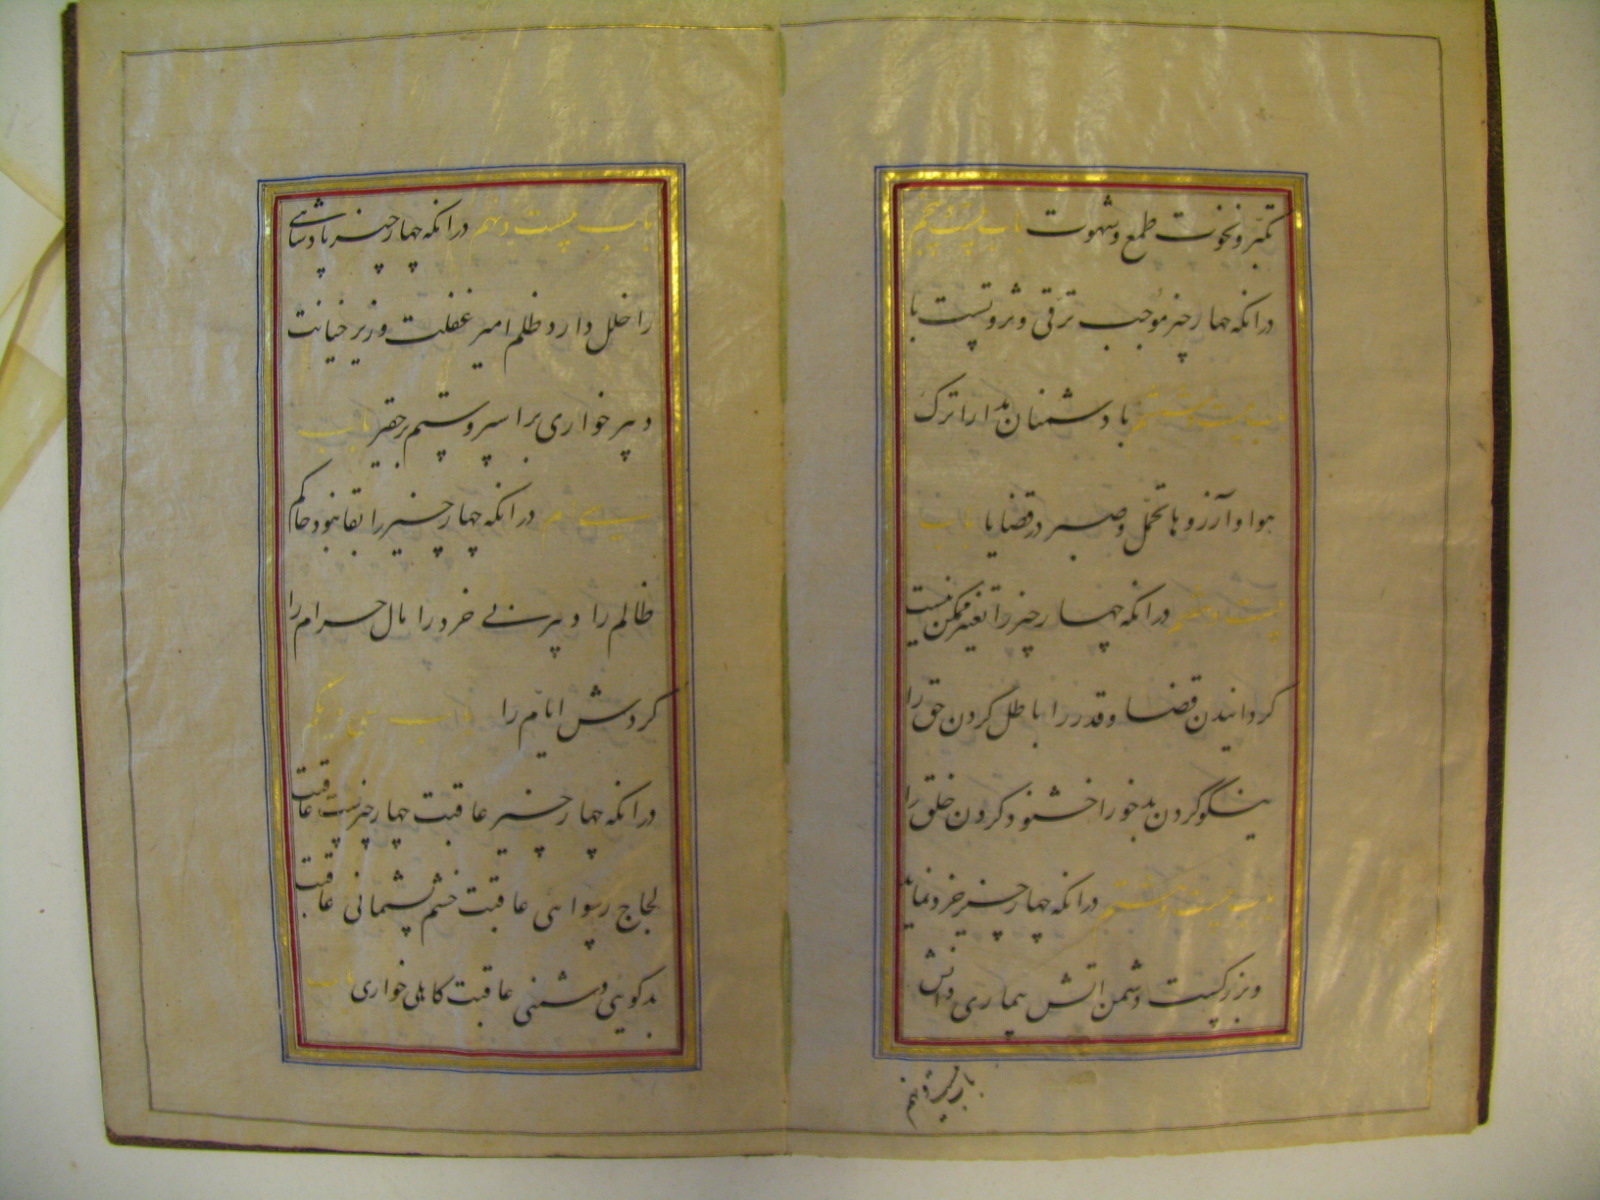 تکبر و نخوت طمع و شهوت باب بیست و پنجم
در آنکه چهار چیز موجب ترقی و ثروتست با
باب بیست و ششم با دشمنان مدارا ترک
هوا و آرزوها تحمل و صبر در قضایا باب
بیست و هفتم در آنکه چهار چیز را تغییر ممکن نیست
گردانیدن قضا و قدر را باطل کردن حق را
نیکو کردن بدخو را خشنود کردن خلق را
باب بیست و هشتم در آنکه چهار چیز خرد نماید
و بزرگست دشمن آتش بیماری دانش
باب بیست و نهم
باب بیست و نهم در آنکه چهار چیز پادشاهی
را خلل دارد ظلم امیر غفلت وزیر خیانت
دبیر خواری بر اسیر و ستم بر حقیر باب
سی ام در آنکه چهار چیز را بقا نبود حاکم
ظالم را دبیر بی خرد را مال حرام را
گردش ایام را باب سی و یکم
در آنکه چهار چیز عاقبت چهار چیز نیست عاقبت
لجاج رسوائی عاقبت خشم پشیمانی عاقبت
بدگوئی دشمنی عاقبت کاهلی خواری باب